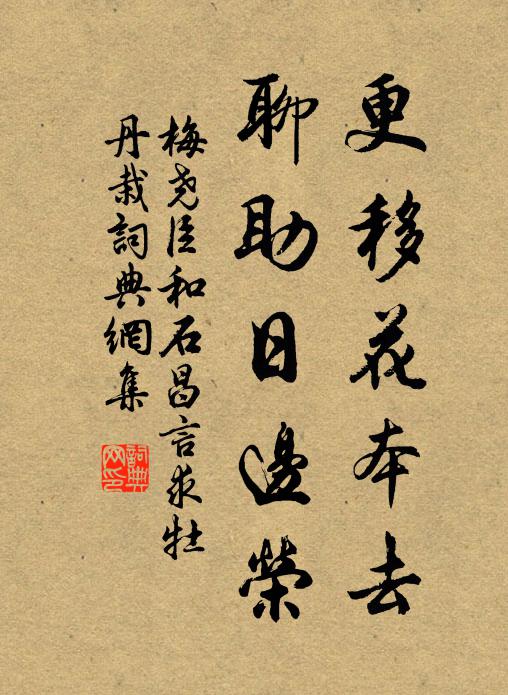 更移花本去
聊助日邊榮
梅堯臣和石昌言求牡
丹栽詞典網集
詞典网印